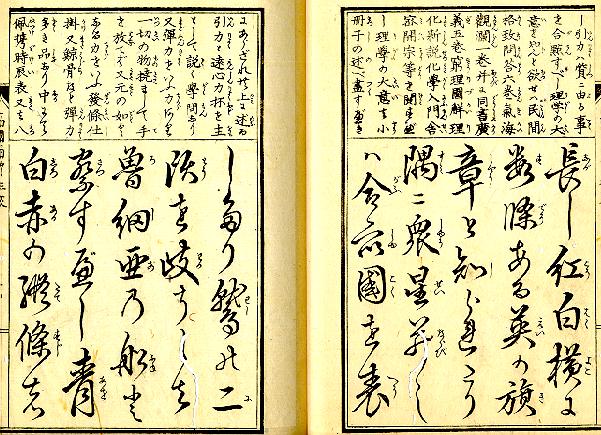 し引力ハ質に由る事
を合點すべし理學の大
意を知んと欲せバ民間
格致問答六巻氣海
觀瀾一巻并に同書廣
義五巻窮理圖解理
化新説化學入門舎
密開宗等を閲すべ
し理學の大意も小
冊子の述べ盡すべき
長し紅白横に
数條ある英の旗
章と知られたり
隅ニ衆星并べし
ハ合衆國を表
にあらざれバ上に述る
引力と遠心力杯を主
として説く學問なり
又弾力といふ力あり
一切の物撓まして手
を放てバ又元の如く
なる力をいふ發條仕
掛又鯨骨ほど弾力
多き品なし中にも
佩携時辰表又も八
したり鷲の二
頭を岐ちしを
魯細亜の船と
察すべし青
白赤の縦條を